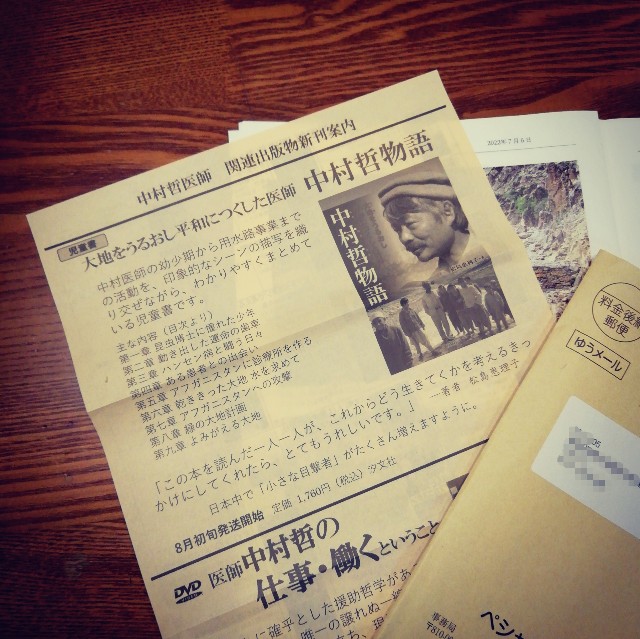 中村哲医師　関連出版物新刊案内
児童書
大地をうるおし平和につくした医師 中村哲物語
中村医師の幼少期から用水路事業まで
の活動を、印象的なシーンの描写を織
り交ぜながら、わかりやすくまとめて
いる児童書です。
主な内容（目次より）
第一章 昆虫博士に憧れた少年
第二章 動き出した運命の歯車
第三章 ハンセン病と闘う日々
第四章 ある患者との出会い
第五章 アフガニスタンに診療所を作る
第六章 乾ききった大地 水を求めて
第七章 アフガニスタンへの攻撃
第八章 緑の大地計画
第九章 よみがえる大地
中村哲物語
「この本を読んだ一人一人が、これからどう生きてくかを考えるきっ
かけにしてくれたら、とてもうれしいです。」　―著者　松島恵利子
日本中で「小さな目撃者」がたくさん増えますように。
8月初旬発送開始　定価 1,760円（税込）汐文社
DVD
医師中村哲の
仕事・働くということ
に確乎とした援助哲学があ
唯一の譲れぬ一
2022年7月6日
料金後納
郵便
ゆうメール
事務局
〒810